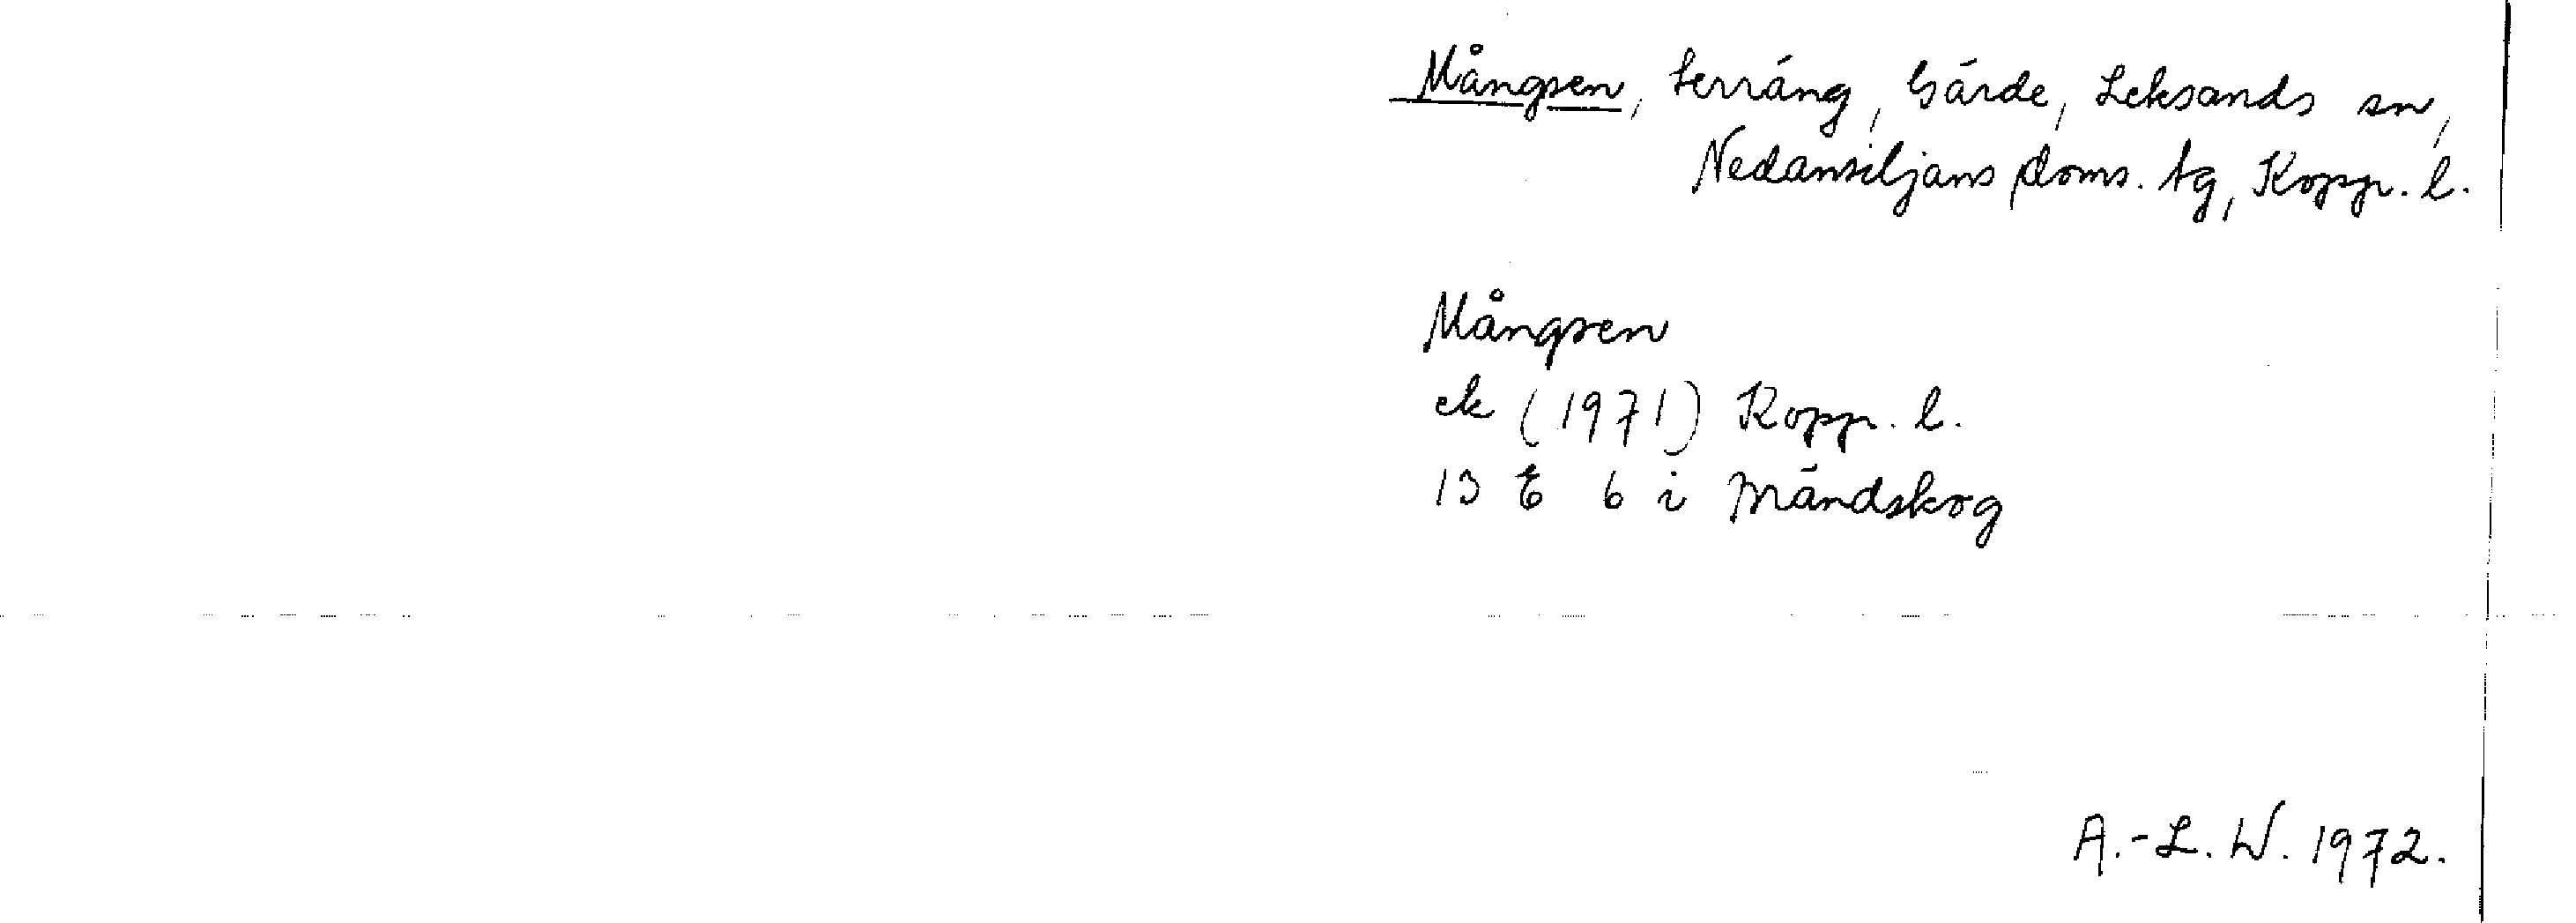 Mångsen, terräng, Gärde, Leksands sn,
Nedansiljans doms. tg, Kopp. l.
Mångsen
ek (1971) Kopp. l.
13 E 6 i Mändskog
A.-L. W. 1972.